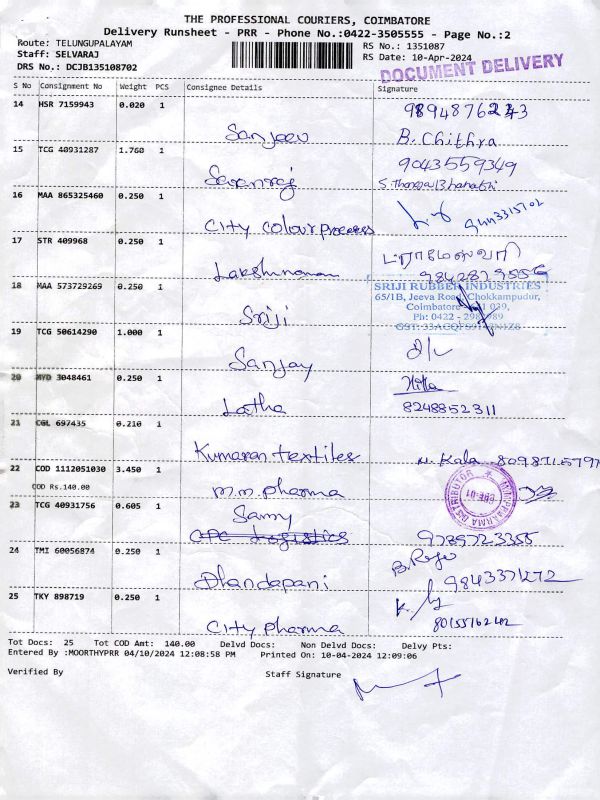 THE PROFESSIONAL COURIERS, COIMBATORE
Delivery Runsheet - PRR - Phone No.:0422-3505555 - Page No.:2
Route: TELUNGUPALAYAM
Staff: SELVARAJ
DRS No.: DCJB135108702
RS No.: 1351087
RS Date: 10-Apr-2024
DOCUMENT DELIVERY
S No Consignment No Weight PCS Consignee Details Signature
14 HSR 7159943 0.020 1
Sanjeev B. Chithra
15 TCG 40931287 1.760 1 9043559349
Saranraj
16 MAA 865325460 0.250 1
City colour process
17 STR 409968 0.250 1
Lakshmanan
18 MAA 573729269 0.250 1
Sriji
SRIJI RUBBER INDUSTRIES
65/1B, Jeeva Road, Chokkampudur,
Coimbatore - 641 039,
Ph: 0422 -
19 TCG 50614290 1.000 1
Sanjay
20 HYD 3048461 0.250 1
Latha 8248852311
21 CGL 697435 0.210 1
Kumaran textiles N. Kala
22 COD 1112051030 3.450 1
COD Rs.140.00
m.m. pharma
23 TCG 40931756 0.605 1
Samy
CPC Logistics 9789723355
24 TMI 60056874 0.250 1
Dhandapani
25 TKY 898719 0.250 1
City pharma
Tot Docs: 25 Tot COD Amt: 140.00 Delvd Docs: Non Delvd Docs: Delvy Pts:
Entered By :MOORTHYPRR 04/10/2024 12:08:58 PM Printed On: 10-04-2024 12:09:06
Verified By Staff Signature